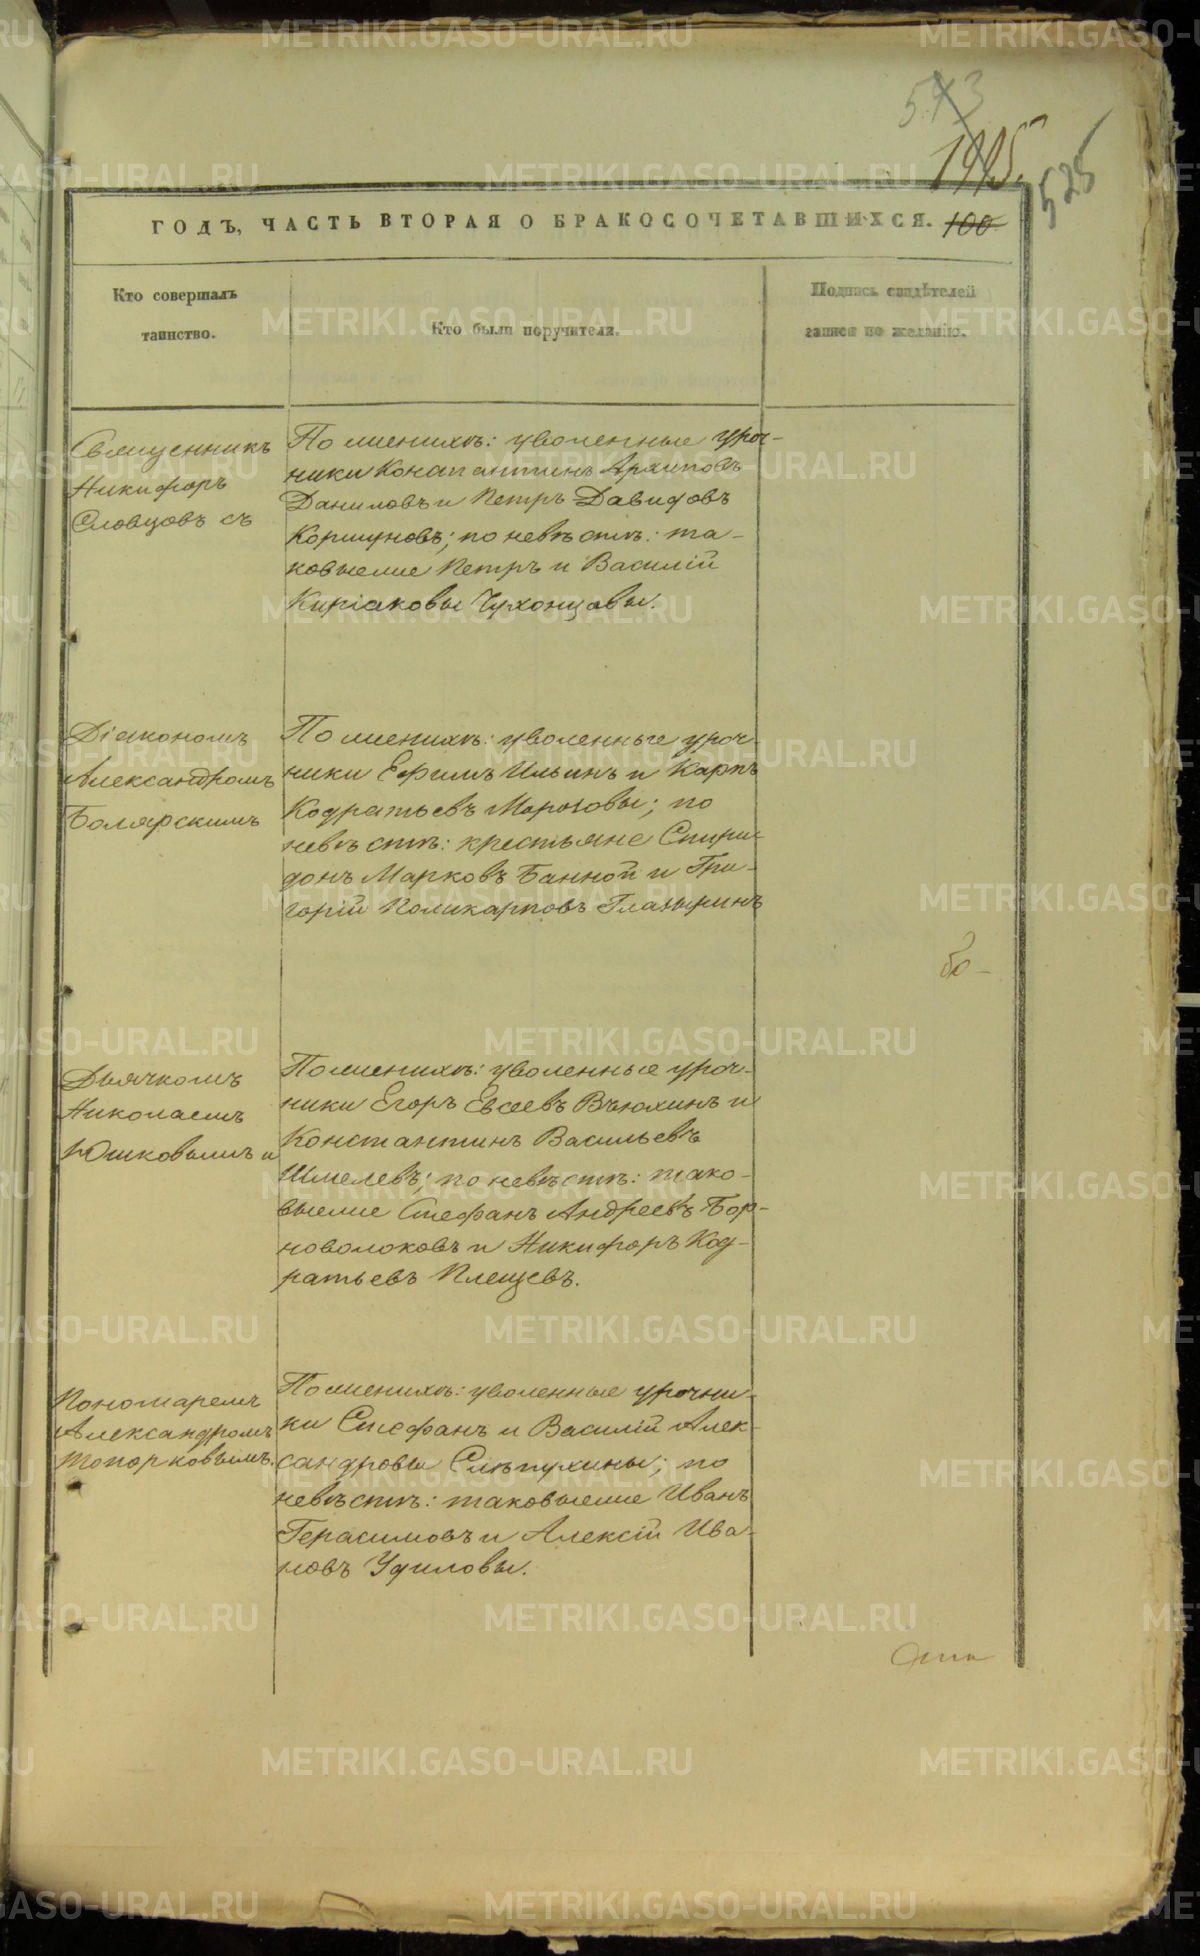 543
1995.
525
ГОДЪ, ЧАСТЬ ВТОРАЯ О БРАКОСОЧЕТАВШИХСЯ. 100
Кто совершалъ
таинство.
Кто были поручители.
Подпись свидѣтелей
записи по желанію.
Священникъ
Никифоръ
Словцовъ съ
По женихѣ: уволенные уроч-
ники Константинъ Архиповъ
Даниловъ и Петръ Давидовъ
Коршуновъ; по невѣстѣ: та-
ковыеже Петръ и Василій
Киріаковы Чухонцовы.
Діакономъ
Александромъ
Боярскимъ
По женихѣ: уволенные уроч-
ники Ефимъ Ильинъ и Карпъ
Кодратьевъ Морозовы; по
невѣстѣ: крестьяне Спири-
донъ Марковъ Банной и Гри-
горій Поликарповъ Глазыринъ
Дьячкомъ
Николаемъ
Юшковымъ и
По женихѣ: уволенные уроч-
ники Егоръ Евсеевъ Вьюхинъ и
Константинъ Васильевъ
Шмелевъ; по невѣстѣ: тако-
выеже Стефанъ Андреевъ Бор-
новолоковъ и Никифоръ Код-
ратьевъ Плещевъ.
Пономаремъ
Александромъ
Топорковымъ.
По женихѣ: уволенные урочни-
ки Стефанъ и Василій Алек-
сандровы Слѣпухины; по
невѣстѣ: таковыеже Иванъ
Герасимовъ и Алексій Ива-
новъ Удиловы.